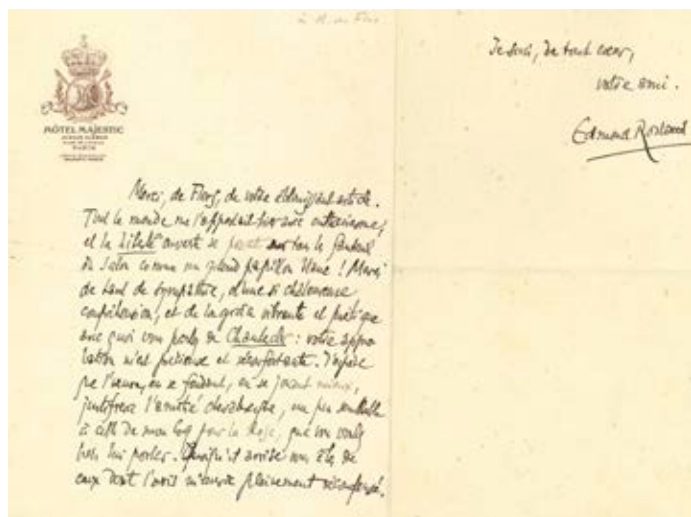 à R. de Flers
HÔTEL MAJESTIC
PARIS
Merci, de Flers, de votre éblouissant article.
Tout le monde me l'apportait hier avec enthousiasme,
et la Liberté ouverte se posait sur tous les fauteuils
du salon comme un grand papillon blanc ! Merci
de tant de sympathie, d'une si chaleureuse
compréhension, et de la grâce vibrante et poétique
avec quoi vous parlez de Chantecler : votre appro
bation m'est précieuse et réconfortante. J'espère
que l'œuvre, en se fondant, en se jouant mieux,
justifiera l'amitié, un peu semblable
à celle de mon Coq pour la Rose, que vous voulez
bien lui porter. Quoiqu'il arrive vous êtes de
ceux dont l'avis m'aura pleinement récompensé.
Je suis, de tout cœur,
votre ami.
Edmond Rostand